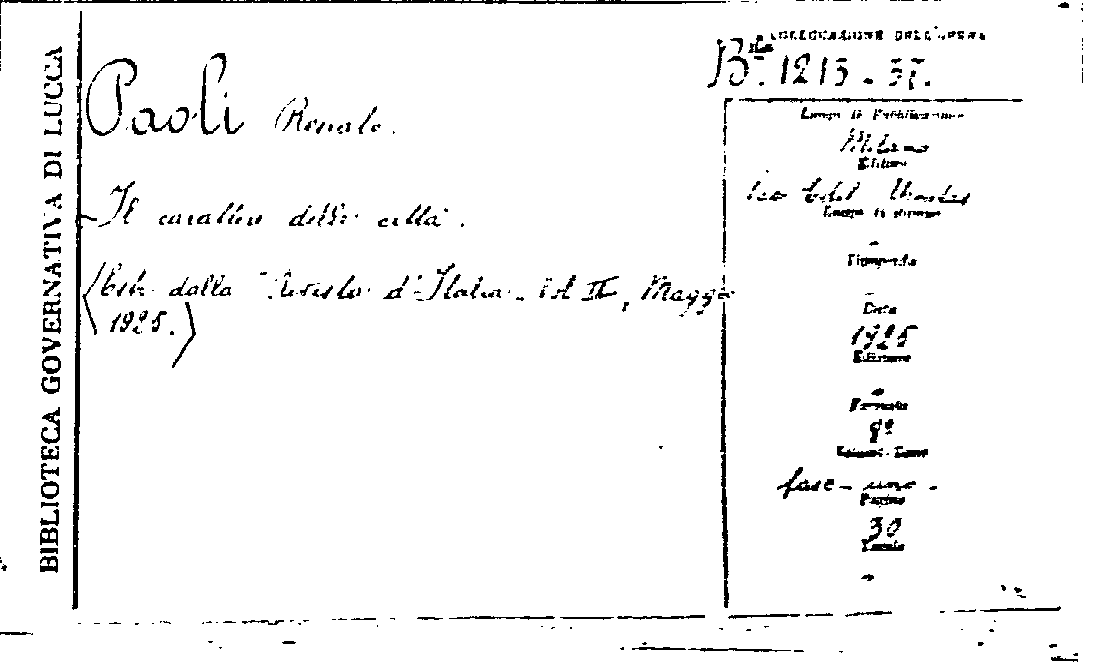 BIBLIOTECA GOVERNATIVA DI LUCCA
COLLOCAZIONE DELL'OPERA
Bta. 1213 - 37.
Paoli Renato.
Il carattere delle città.
(Estr. dalla "Rivista d'Italia. Vol II, Maggio
1925.)
Luogo di Pubblicazione
Milano
Editore
Luogo di stampa
Stamperia
Data
1925
Edizione
Formato
8º
Volumi - Tomo
fasc - uno -
Pagine
30
Tavole